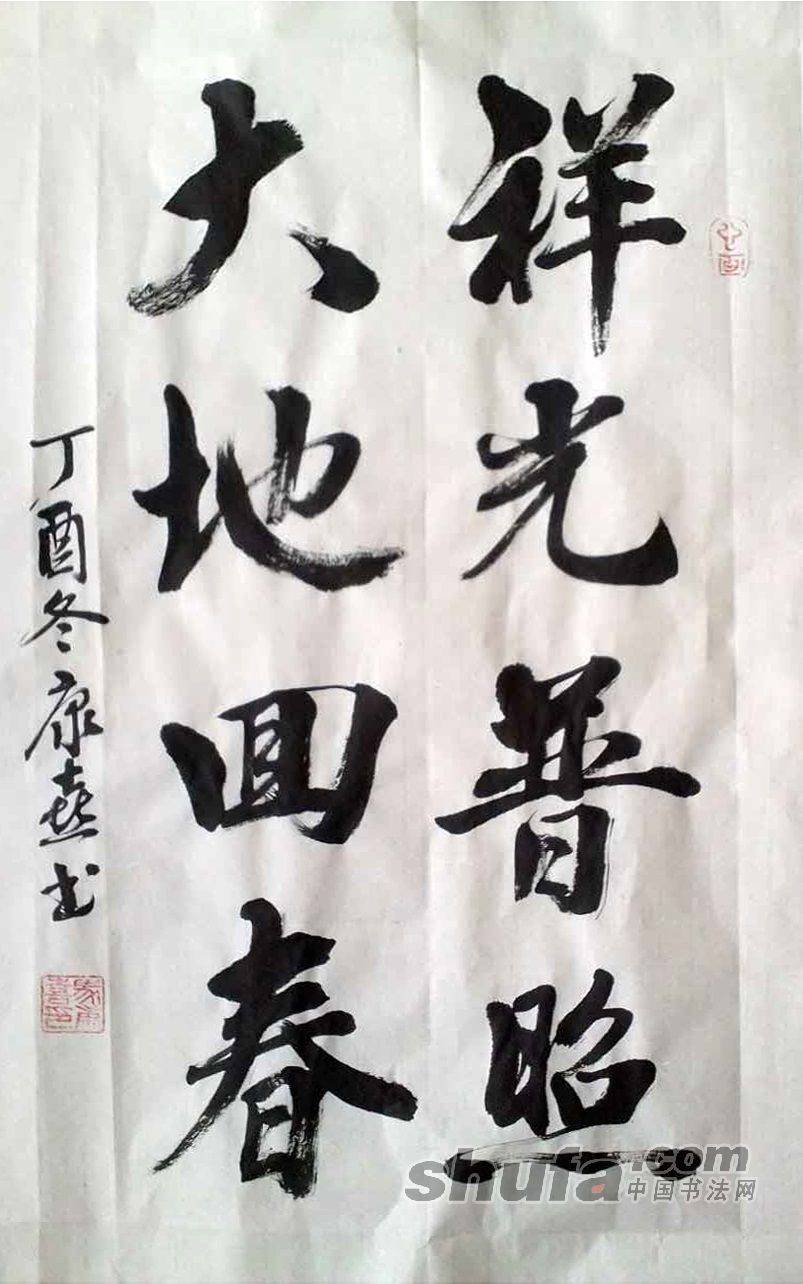 祥光普照
大地回春
丁酉冬康熹书
shufa.com
中国书法网